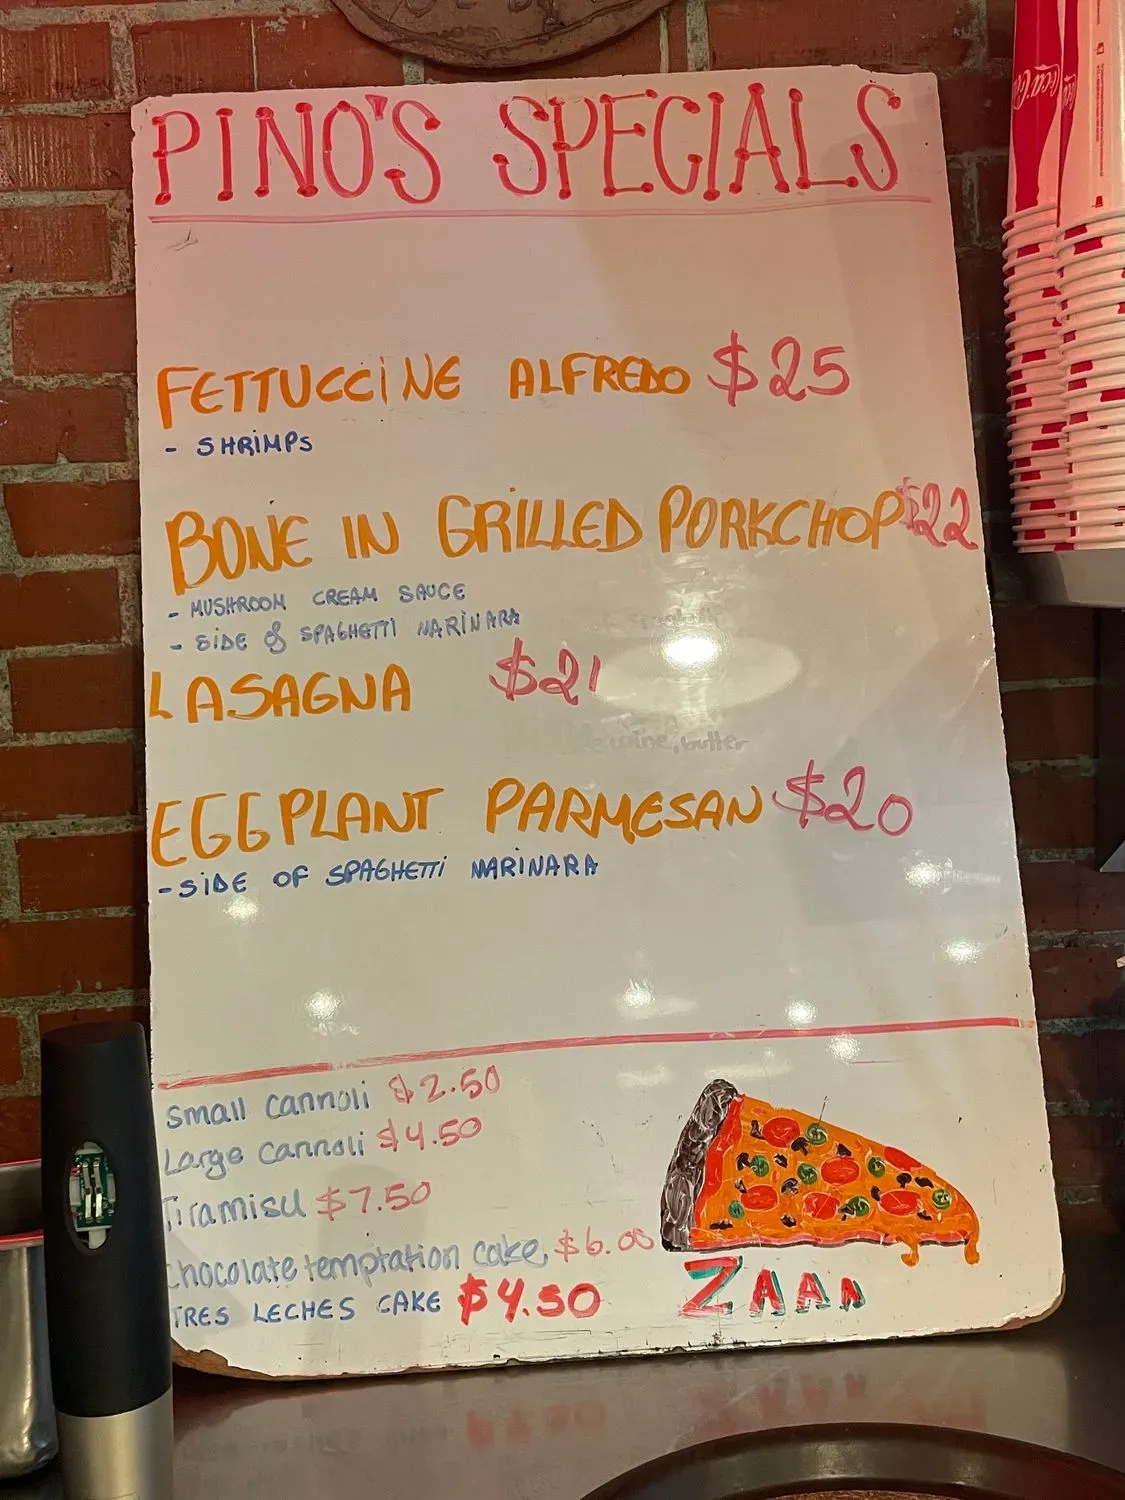 PINO'S SPECIALS
FETTUCCiNE ALFREDO $25
- SHRiMPS
BONE IN GRILLED PORKCHOP $22
- MUSHROOM CREAM SAUCE
- SiDE of SPAGHETTI MARINARA
LASAGNA $21
wine, butter
EGGPLANT PARMESAN $20
- SiDE OF SPAGHETTi MARiNARA
Small Cannoli $2.50
Large Cannoli $4.50
Tiramisu $7.50
Chocolate temptation cake, $6.00
TRES LECHES CAKE $4.50
ZAAA
Coca-Cola